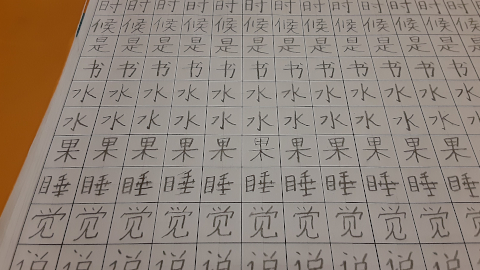 时时时时时时时时时时时时时
候候候候候候候候候候候候候
是是是是是是是是是是是是是
书书书书书书书书书书书书
水水水水水水水水水水水水
水水水水水水水水水水水水
果果果果果果果果果果果
睡睡睡睡睡睡睡睡睡睡睡
觉觉觉觉觉觉觉觉觉觉觉
说说说说说说说说说说